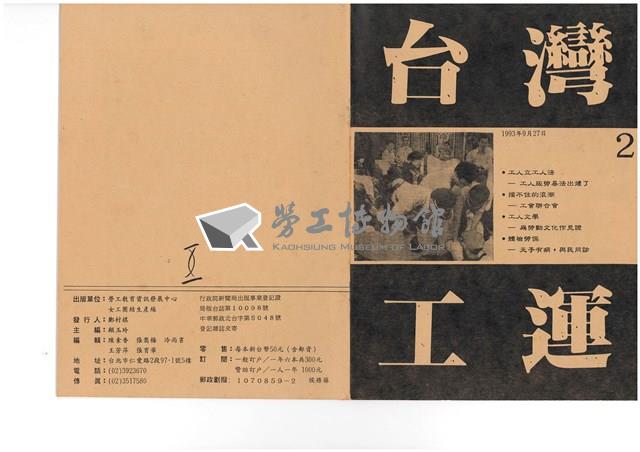 台灣
1993年9月27日
2
•工人立工人法
—工人版勞基法出爐了
•擋不住的浪潮
—工會聯合會
•工人文學
—為勞動文化作見證
•體檢勞保
—天子有病,與民同診
工運
勞工博物館
KAOHSIUNG MUSEUM OF LABOR
出版單位:勞工教育資訊發展中心
女工團結生產線
發行人:鄭村祺
主編:顧玉玲
編輯:陳素香 張榮梅 冷尚書
王芳萍 張育華
地址:台北市仁愛路2段97-1號5樓
電話:(02)3923670
傳真:(02)3517580
行政院新聞局出版事業登記證
局版台誌第10098號
中華郵政北台字第5048號
登記雜誌交寄
零售:每本新台幣50元(含郵資)
訂閱:一般訂戶/一年六本共300元
贊助訂戶/一人一年1000元
郵政劃撥:1070859-2